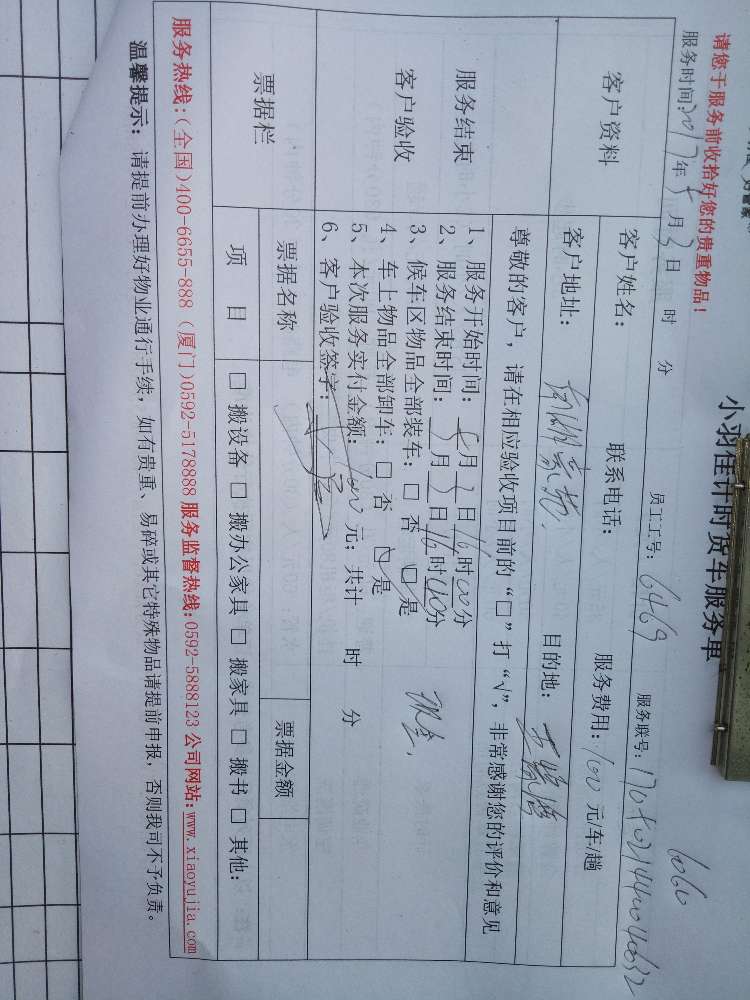 小羽佳计时货车服务单
1060
请您于服务前收拾好您的贵重物品！
服务时间：2017年5月2日 时 分 员工工号：6469 服务联号：
客户资料
客户姓名： 联系电话： 服务费用：100元/车/趟
客户地址： 目的地：
服务结束
客户验收
尊敬的客户，请在相应验收项目前的“□”打“√”，非常感谢您的评价和意见
1、服务开始时间：5月2日16时00分
2、服务结束时间：5月2日16时40分
3、候车区物品全部装车：□ 否 □ 是
4、车上物品全部卸车：□ 否 □ 是
现金，
5、本次服务实付金额：100元；共计 时 分
6、客户验收签字：
票据栏
票据名称 票据金额
项 目 □ 搬设备 □ 搬办公家具 □ 搬家具 □ 搬书 □ 其他：
服务热线：（全国）400-6655-888（厦门）0592-5178888 服务监督热线：0592-5888123 公司网站：www.xiaoyujia.com
温馨提示：请提前办理好物业通行手续，如有贵重、易碎或其它特殊物品请提前申报，否则我司不予负责。